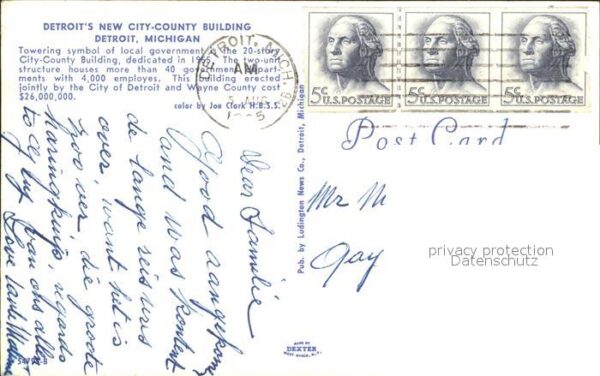 DETROIT'S NEW CITY-COUNTY BUILDING
DETROIT, MICHIGAN
Towering symbol of local government is the 20-story
City-County Building, dedicated in 195. The two-unit
structure houses more than 40 government depart-
ments with 4,000 employees. This building erected
jointly by the City of Detroit and Wayne County cost
$26,000,000.
color by Joe Clark H.B.S.S.
DETROIT, MICH.
AM
5¢ U.S.POSTAGE
5¢ U.S.POSTAGE
5¢ U.S.POSTAGE
Post Card
Pub. by Ludington News Co., Detroit, Michigan
Dear Familie
Good aangekomen
and was
de lange reis
over, want het is
zoo ver die groote
haringkuip, regards
to ey van ons all
Love tante
Mr M
Gay
privacy protection
Datenschutz
MADE BY
DEXTER
WEST NYACK, N.Y.